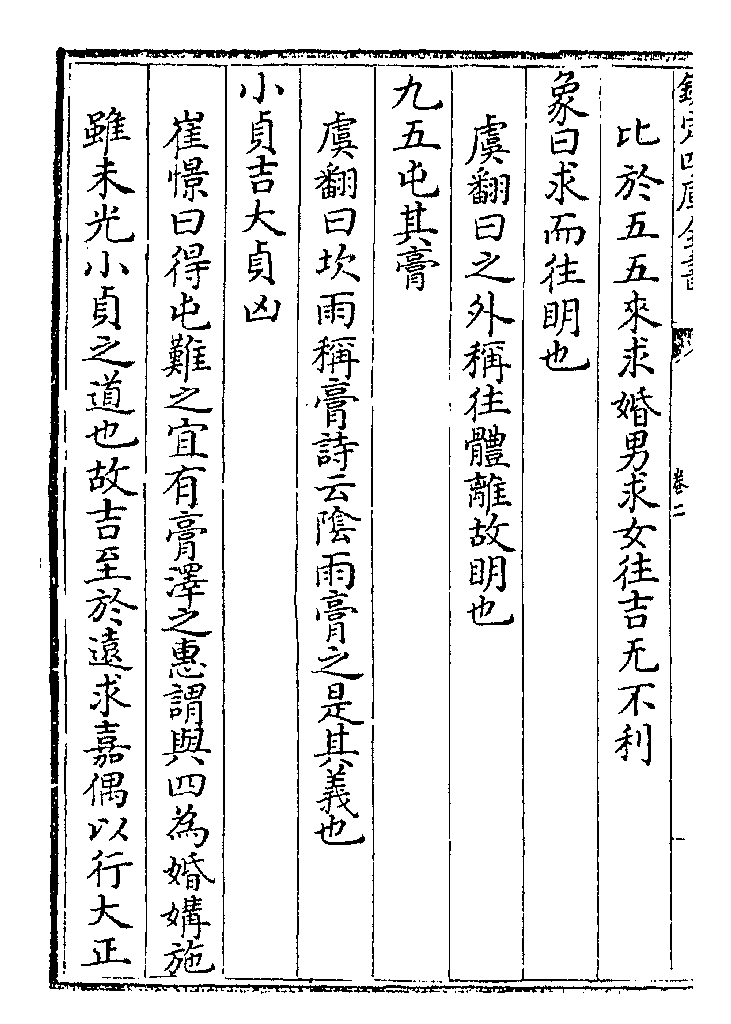 欽定四庫全書
卷二
比於五五來求婚男求女往吉无不利
象曰求而往明也
虞翻曰之外稱往體離故明也
九五屯其膏
虞翻曰坎雨稱膏詩云陰雨膏之是其義也
小貞吉大貞凶
崔憬曰得屯難之宜有膏澤之惠謂與四為婚媾施
雖未光小貞之道也故吉至於遠求嘉偶以行大正